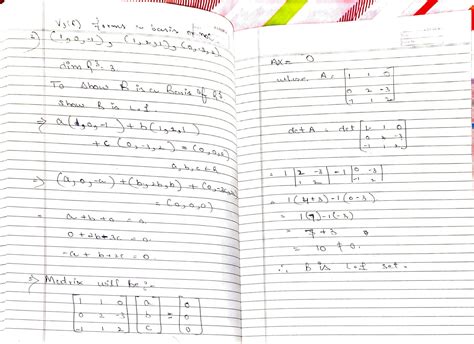 V3(R) forms a basis of
(1, 0, -1), (1, 2, 1), (0, -3, 2)
dim R³ = 3
To show B is a Basis of R³
show B is L.I.
⇒ a(1, 0, -1) + b(1, 2, 1)
+ c(0, -3, 2) = (0, 0, 0)
a, b, c ∈ R
⇒ (a, 0, -a) + (b, 2b, b) + (0, -3c, 2c)
= (0, 0, 0)
a + b + 0 = 0.
0 + 2b - 3c = 0.
-a + b + 2c = 0.
⇒ Matrix will be:-
[1 1 0] [a] [0]
[0 2 -3] [b] = [0]
[-1 1 2] [c] [0]
AX = 0
where, A = [1 1 0]
[0 2 -3]
[-1 1 2]
det A = det [1 1 0]
[0 2 -3]
[-1 1 2]
= 1 |2 -3| - 1 |0 -3|
|1 2| |-1 2|
= 1(4+3) - 1(0-3)
= 1(7) - 1(-3)
= 7 + 3
= 10 ≠ 0.
∴ B is L.I set.